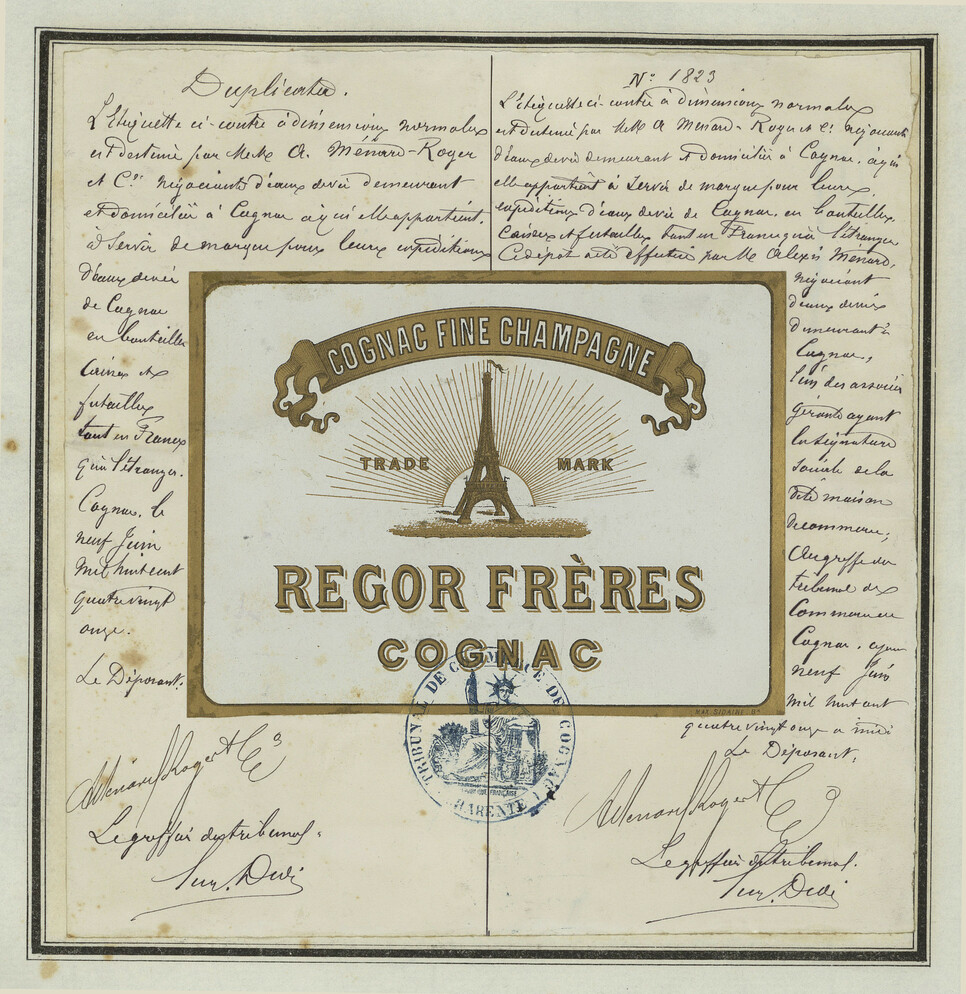 Duplicata.
L'Etiquette ci-contre à dimensions normales
est destinée par MM. A. Ménard-Roger
et Cie. négociants d'eaux de vie demeurant
et domiciliés à Cognac à qui elle appartient.
à servir de marque pour leurs expéditions
d'eaux de vie
de Cognac
en bouteilles
Caisses et
futailles
tant en France
qu'à l'étranger.
Cognac, le
neuf Juin
mil huit cent
quatre vingt
onze.
Le Déposant.
A Ménard Roger et Cie
Le greffier du tribunal.
No 1823
L'étiquette ci-contre à dimensions normales
est destinée par MM. A Ménard-Roger et Cie négociants
d'eaux de vie demeurant et domiciliés à Cognac, à qui
elle appartient à servir de marque pour leurs
expéditions d'eaux de vie de Cognac, en bouteilles
caisses et futailles tant en France qu'à l'étranger
Ce dépôt a été effectué par M. Alexis Ménard,
négociant
d'eaux de vie
demeurant à
Cognac,
l'un des associés
gérants ayant
la signature
sociale de la
dite maison
de commerce;
Au greffe du
tribunal de
Commerce de
Cognac, ce jour
neuf Juin
mil huit cent
quatre vingt onze à midi
Le Déposant.
A Ménard Roger et Cie
Le greffier du tribunal.
COGNAC FINE CHAMPAGNE
TRADE MARK
REGOR FRÈRES
COGNAC
TRIBUNAL DE COMMERCE DE COGNAC
CHARENTE